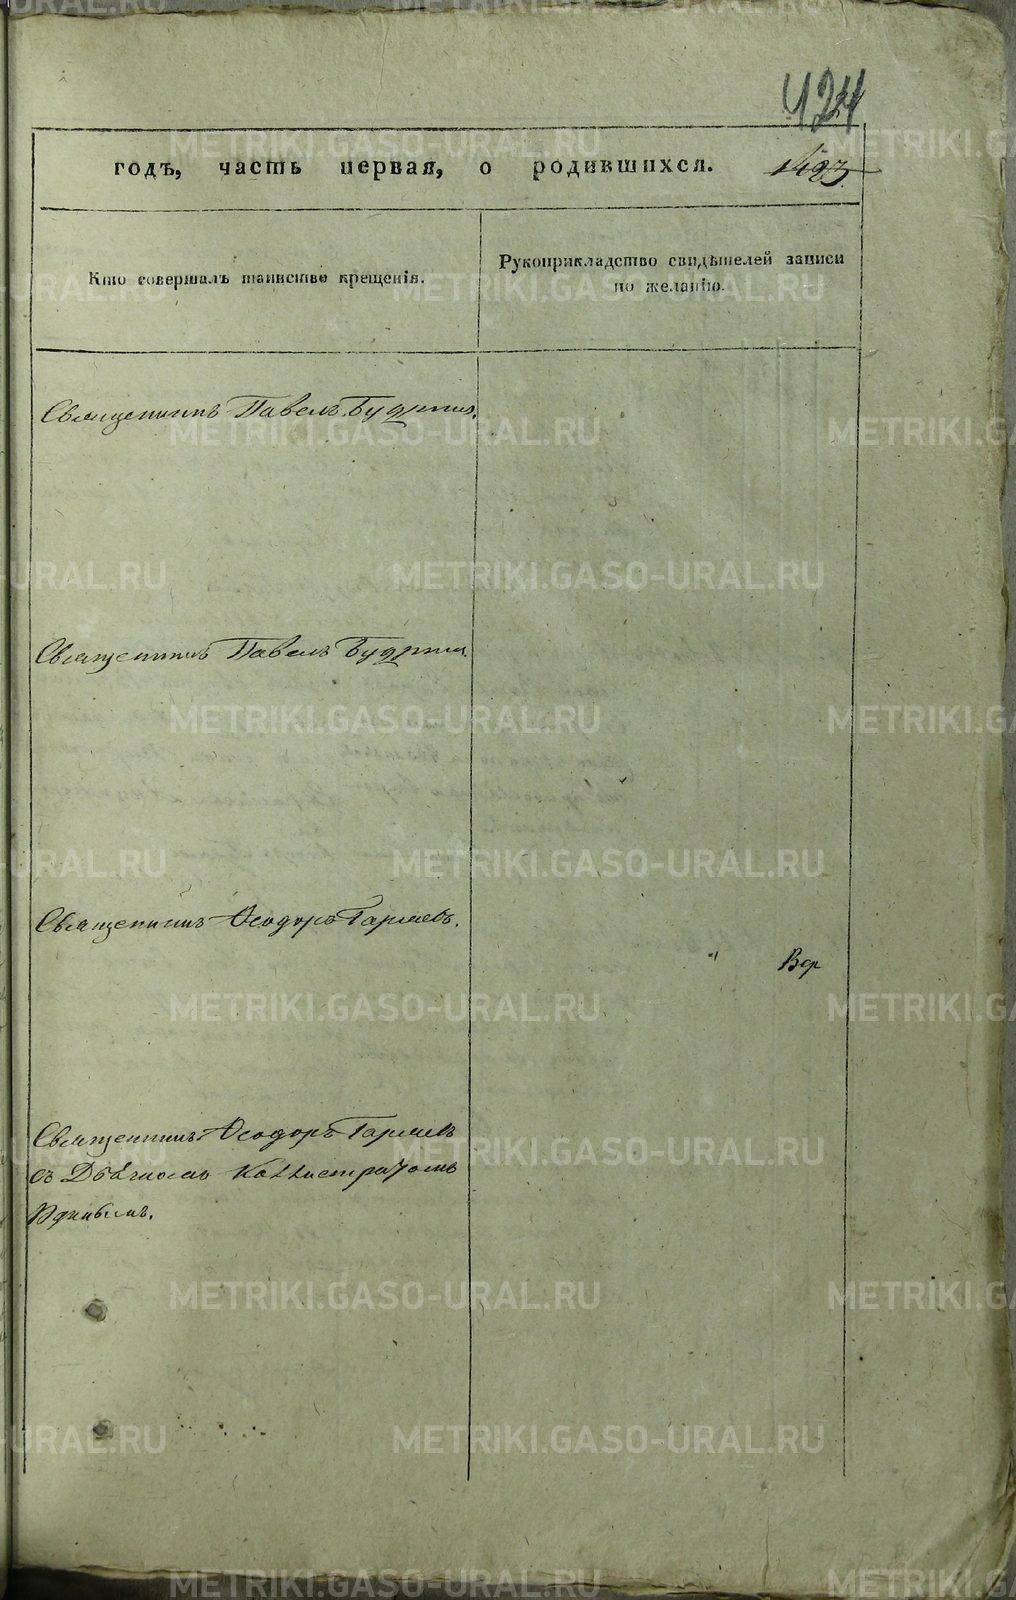 424
годъ, часть первая, о родившихся. 423.
Кто совершалъ таинство крещенія.
Рукоприкладство свидѣтелей записи
по желанію.
Священникъ Павелъ Будринъ.
Священникъ Павелъ Будринъ.
Священникъ Ѳеодоръ Гаряевъ.
Вер
Священникъ Ѳеодоръ Гаряевъ
съ Дьячкомъ Каллистратомъ
METRIKI.GASO-URAL.RU